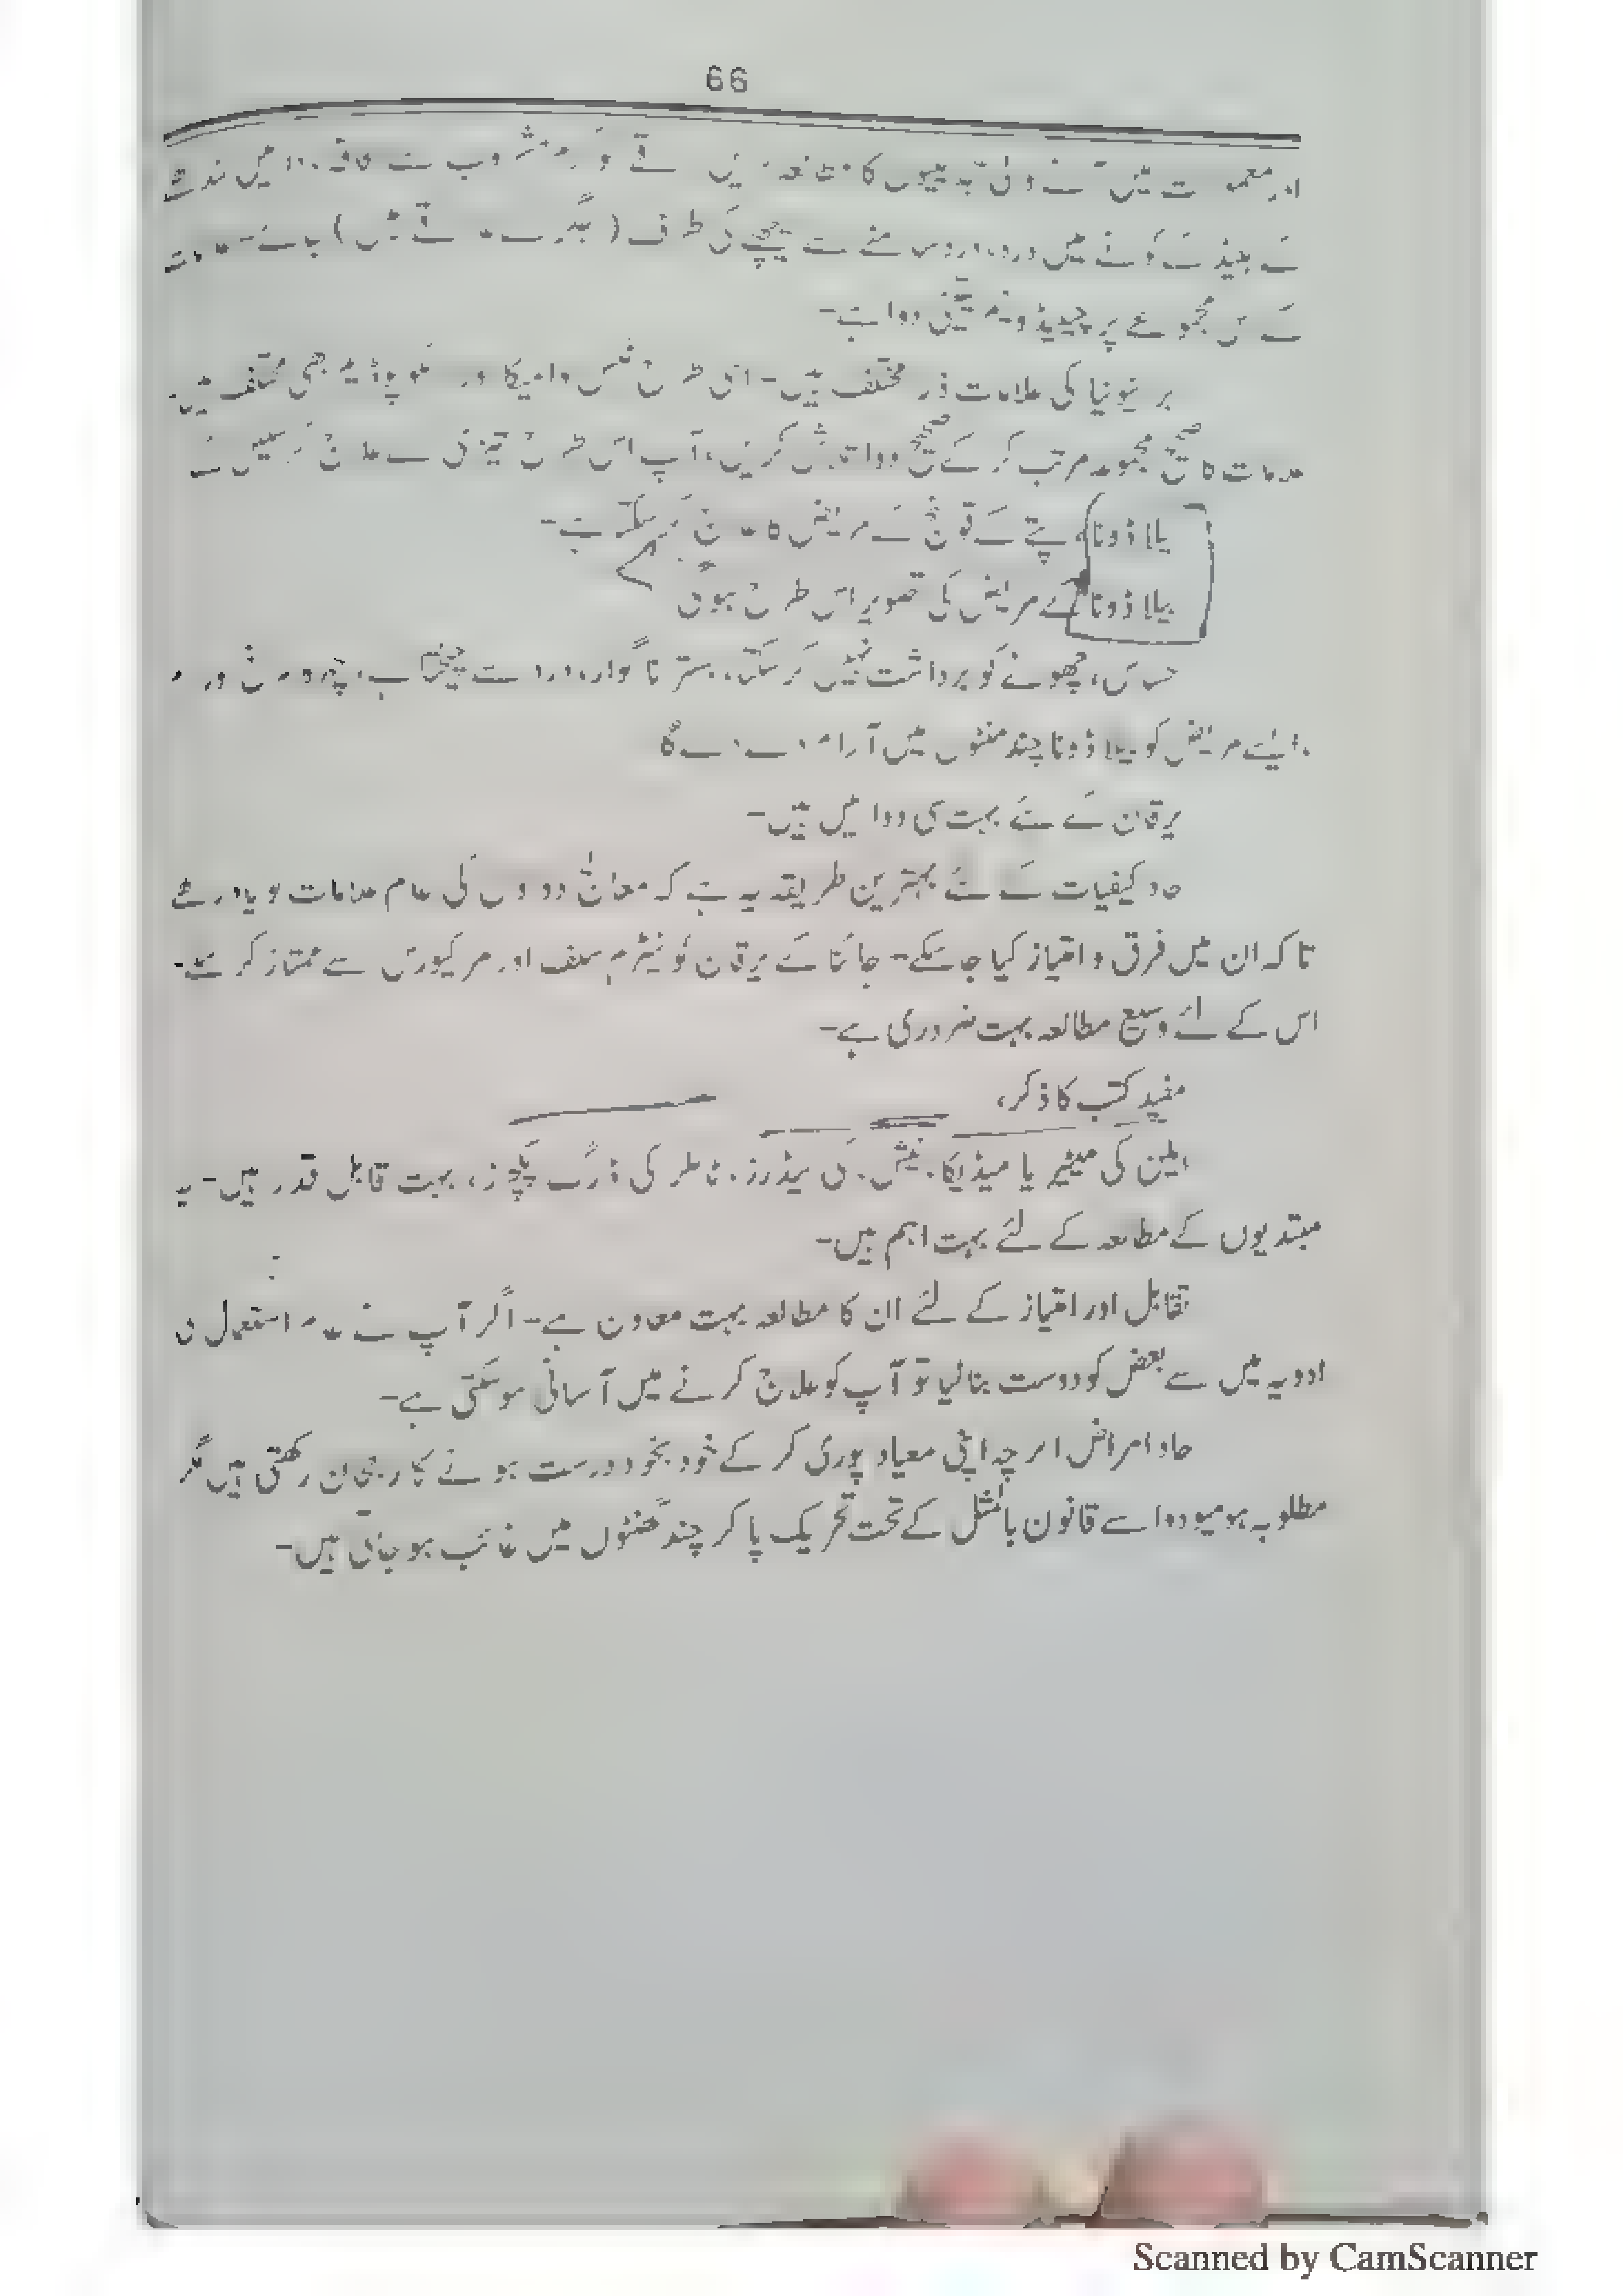 66
اور میں کا میں
میں درد، کی طرف (
مجموعے پر چیلیڈونیم دوا ہے۔
برائیونیا کی علامات مختلف ہیں۔ اسی طرح نکس وامیکا اور لائیکوپوڈیم بھی مختلف ہیں۔
علامات کا صحیح مجموعہ مرتب کر کے صحیح دوا تلاش کریں، آپ اس طرح تیزی سے علاج کر سکیں گے
بیلا ڈونا، پتے کے قولنج کے مریض کا علاج کر سکتا ہے۔
بیلا ڈونا کے مریض کی تصویر اس طرح ہوگی
حساس، چھونے کو برداشت نہیں کر سکتا، بستر ناگوار، درد سے چیختا ہے، چہرہ سرخ اور
، ایسے مریض کو بیلا ڈونا چند منٹوں میں آرام دے دے گا
یرقان کے لئے بہت سی دوائیں ہیں۔
حاد کیفیات کے لئے بہترین طریقہ یہ ہے کہ معالج دواؤں کی عام علامات کو یاد رکھے
تاکہ ان میں فرق و امتیاز کیا جا سکے۔ چائنا کے یرقان کو نیٹرم سلف اور مرکیورس سے ممتاز کر سکے۔
اس کے لئے وسیع مطالعہ بہت ضروری ہے۔
مفید کتب کا ذکر،
ایلن کی میٹیریا میڈیکا، نیش کی لیڈرز، ٹائلر کی ڈرگ پکچرز، بہت قابل قدر ہیں۔ یہ
مبتدیوں کے مطالعہ کے لئے بہت اہم ہیں۔
تقابل اور امتیاز کے لئے ان کا مطالعہ بہت معاون ہے۔ اگر آپ نے عام استعمال کی
ادویہ میں سے بعض کو دوست بنا لیا تو آپ کو علاج کرنے میں آسانی ہو سکتی ہے۔
حاد امراض اگرچہ اپنی معیاد پوری کر کے خود بخود درست ہونے کا رجحان رکھتی ہیں مگر
مطلوبہ ہومیو دوا سے قانون بالمثل کے تحت تحریک پا کر چند گھنٹوں میں غائب ہو جاتی ہیں۔
Scanned by CamScanner